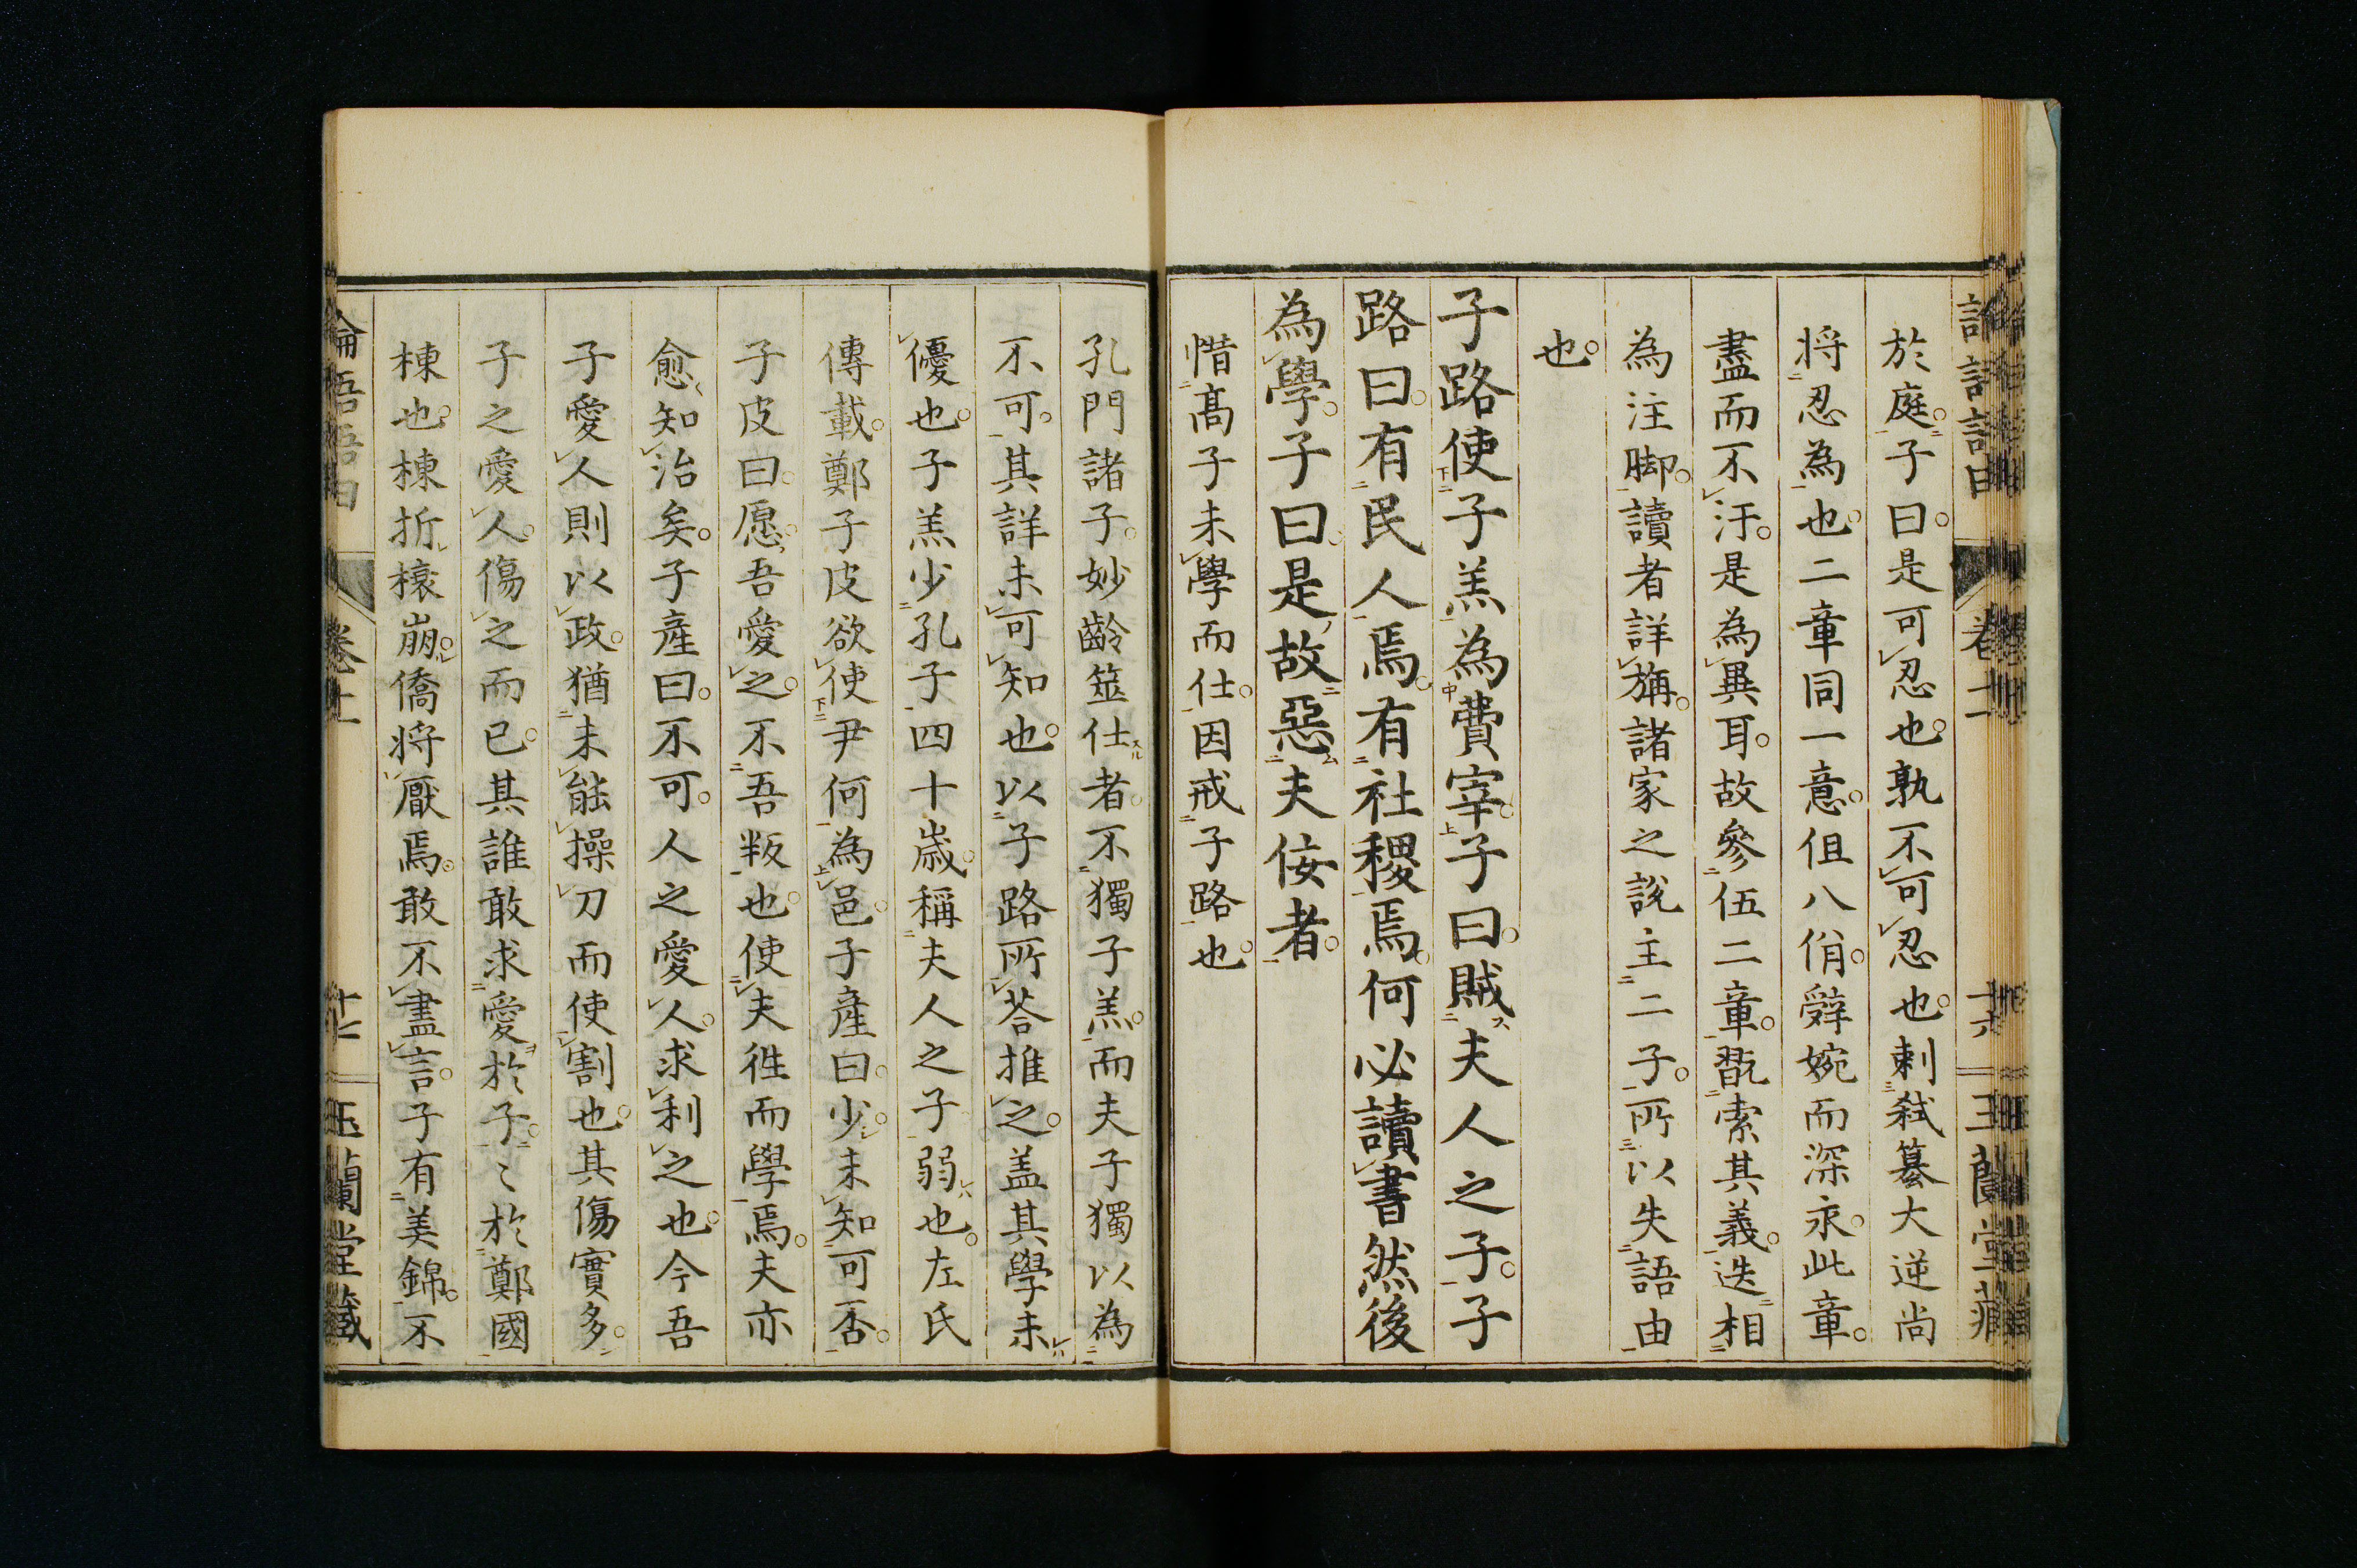 於庭。子曰。是可忍也。孰不可忍也。刺弑簒大逆尚
将忍為也。二章同一意。但八佾。辭婉而深永。此章。
盡而不汙。是為異耳。故參伍二章。翫索其義。迭相
為注脚。讀者詳旃。諸家之說主二子。所以失語由
也。
子路使子羔為費宰。子曰。賊夫人之子。子
路曰。有民人焉。有社稷焉。何必讀書然後
為學。子曰。是故惡夫佞者。
惜髙子未學而仕。因戒子路也。
孔門諸子。妙齡筮仕者。不獨子羔。而夫子獨以為
不可。其詳未可知也。以子路所荅推之。盖其學未
優也。子羔少孔子四十歳。稱夫人之子。弱也。左氏
傳載。鄭子皮欲使尹何為邑。子產曰。少。未知可否。
子皮曰。愿。吾愛之。不吾叛也。使夫徃而學焉。夫亦
愈知治矣。子產曰。不可。人之愛人。求利之也。今吾
子愛人則以政。猶未能操刀而使割也。其傷實多。
子之愛人。傷之而已。其誰敢求愛於子。〻於鄭國
棟也。棟折榱崩。僑将厭焉。敢不盡言。子有美錦。不
卷十
玉蘭堂藏